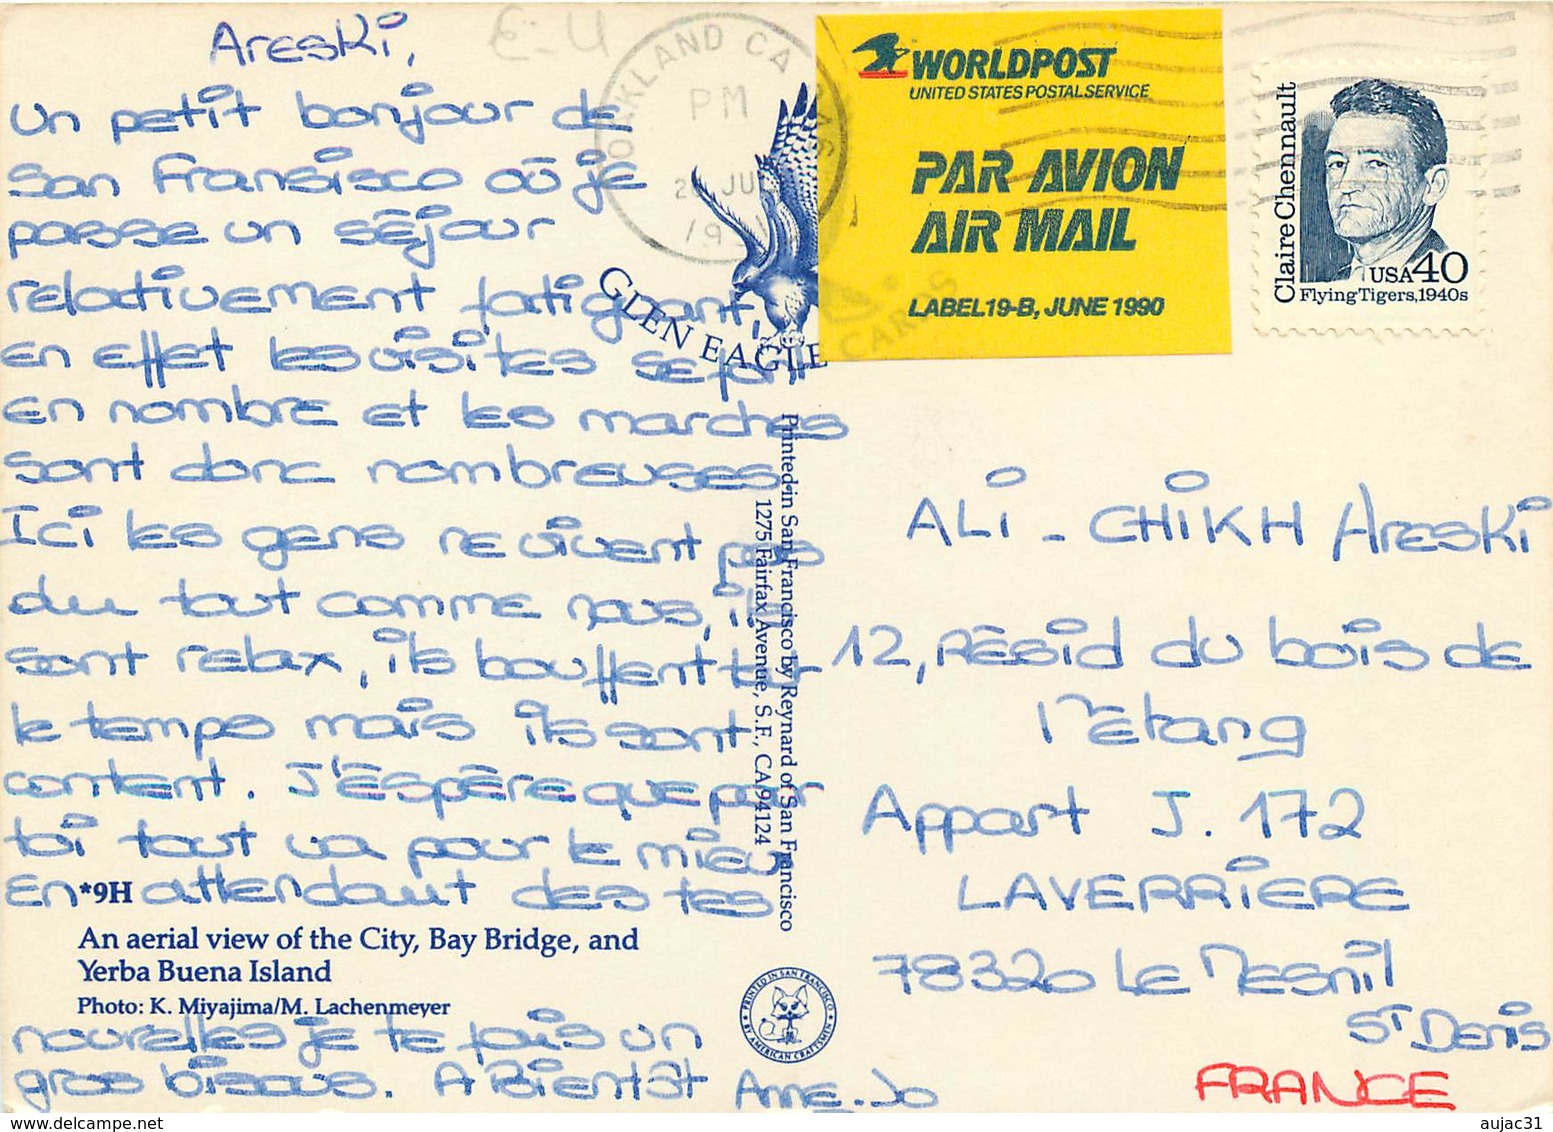 Areski,
un petit bonjour de
san Fransisco où je
passe un séjour
relativement fatigant,
en effet les visites se font
en nombre et les marches
sont donc nombreuses
Ici les gens ne vivent pas
du tout comme nous, ils
sont relax, ils bouffent tt
le temps mais ils sont
content. J'espère que pour
toi tout va pour le mieux
En attendant des tes
nouvelles je te fais un
gros bisous. A Bientôt Anne-Jo
E-U
OAKLAND CA
PM
JU
GLEN EAGLE
CARDS
*9H
An aerial view of the City, Bay Bridge, and
Yerba Buena Island
Photo: K. Miyajima/M. Lachenmeyer
Printed in San Francisco by Reynard of San Francisco
1275 Fairfax Avenue, S.F., CA 94124
PRINTED IN SAN FRANCISCO
BY AMERICAN CRAFTSMEN
WORLDPOST
UNITED STATES POSTAL SERVICE
PAR AVION
AIR MAIL
LABEL 19-B, JUNE 1990
Claire Chennault
USA 40
Flying Tigers, 1940s
ALi - CHIKH Areski
12, Résid du bois de
l'Etang
Appart J. 172
LAVERRiERE
78320 Le Mesnil
St Denis
FRANCE
delcampe.net
aujac31